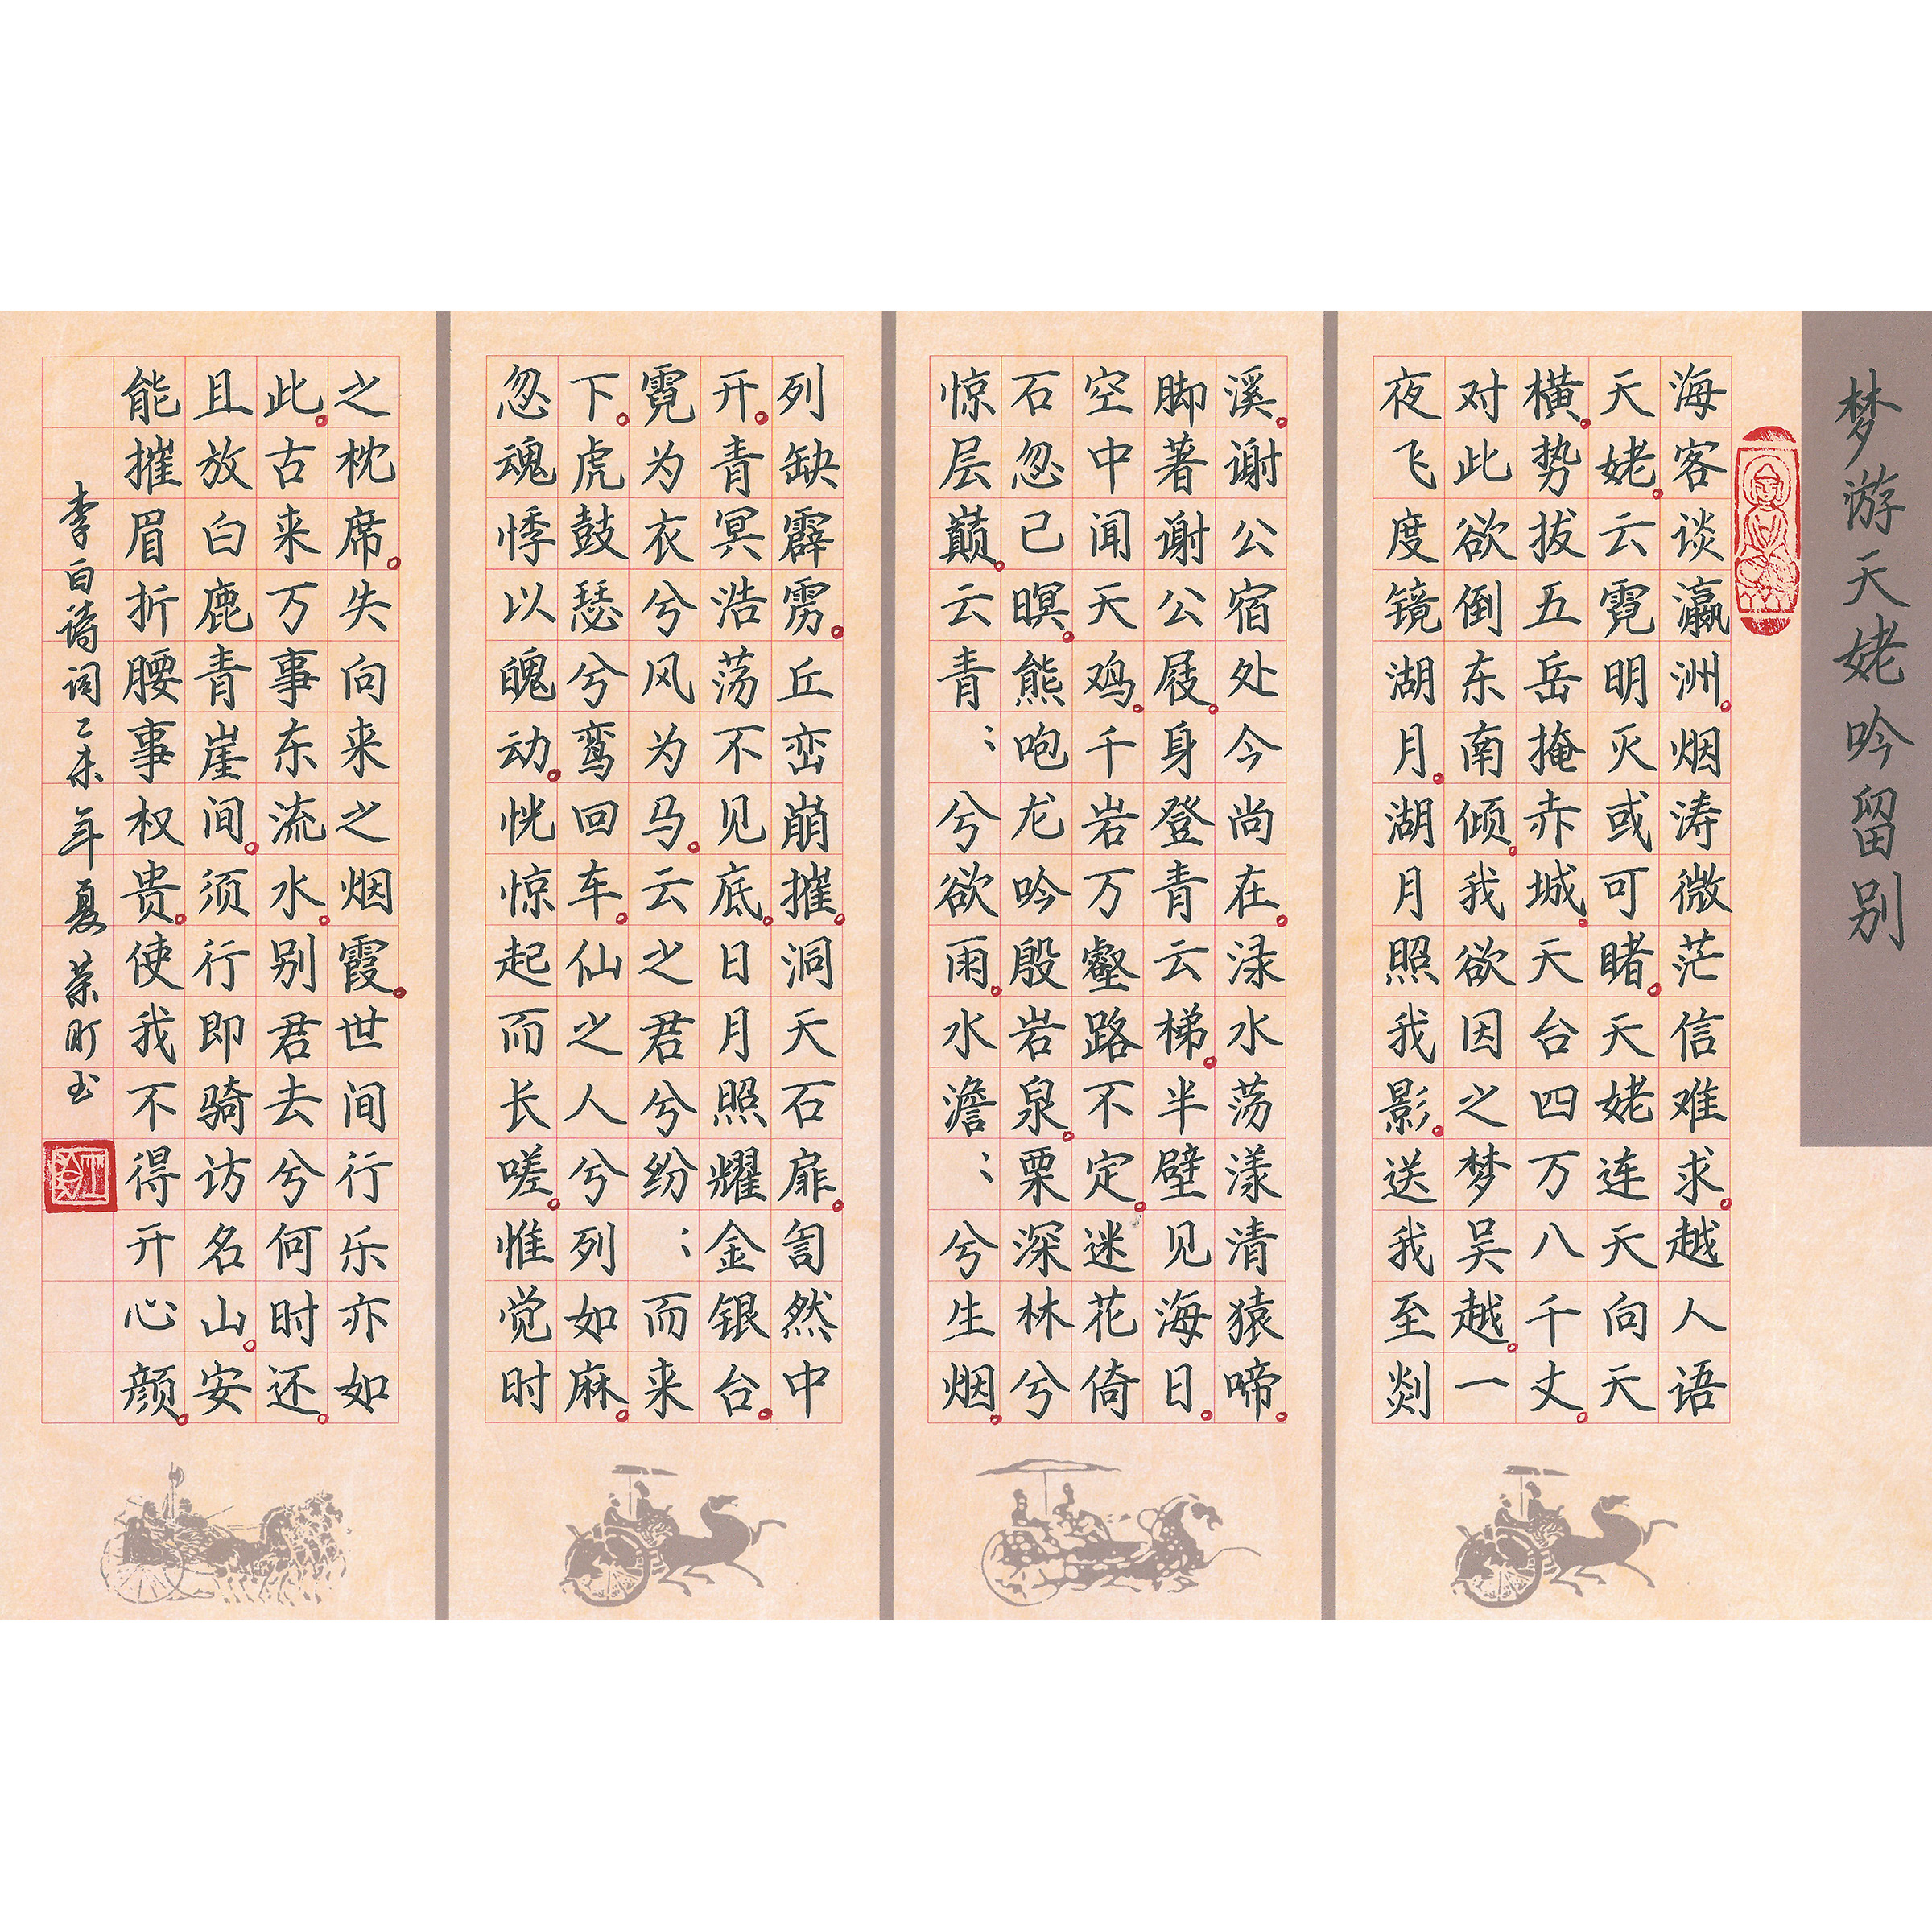 梦游天姥吟留别
海客谈瀛洲。烟涛微茫信难求。越人语
天姥。云霓明灭或可睹。天姥连天向天
横。势拔五岳掩赤城。天台四万八千丈。
对此欲倒东南倾。我欲因之梦吴越。一
夜飞度镜湖月。湖月照我影。送我至剡
溪。谢公宿处今尚在。渌水荡漾清猿啼。
脚著谢公屐。身登青云梯。半壁见海日。
空中闻天鸡。千岩万壑路不定。迷花倚
石忽已暝。熊咆龙吟殷岩泉。栗深林兮
惊层巅。云青：兮欲雨。水澹：兮生烟。
列缺霹雳。丘峦崩摧。洞天石扉。訇然中
开。青冥浩荡不见底。日月照耀金银台。
霓为衣兮风为马。云之君兮纷：而来
下。虎鼓瑟兮鸾回车。仙之人兮列如麻。
忽魂悸以魄动。恍惊起而长嗟。惟觉时
之枕席。失向来之烟霞。世间行乐亦如
此。古来万事东流水。别君去兮何时还。
且放白鹿青崖间。须行即骑访名山。安
能摧眉折腰事权贵。使我不得开心颜。
李白诗词乙未年夏荣町书